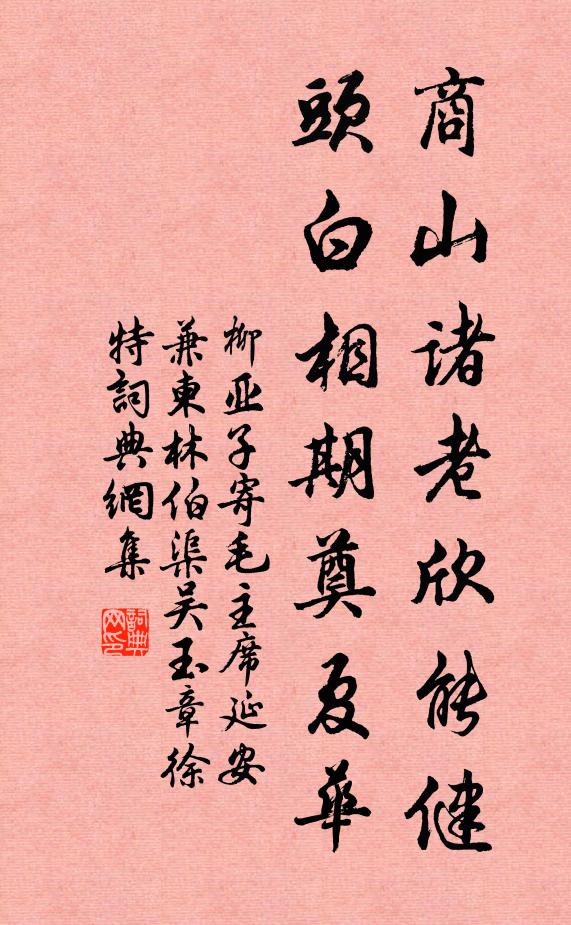 商山諸老欣能健
頭白相期奠夏華
柳亚子寄毛主席延安
兼東林伯渠吴玉章徐
特詞典網集
詞典網印